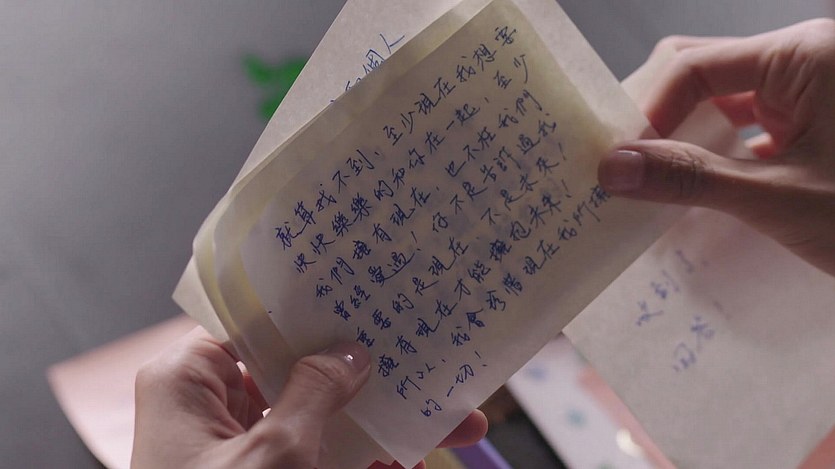 個人
就算找不到，至少現在我想要
快快樂樂的和你在一起，至少
我們擁有現在，也不枉我們
曾經愛過，你不是告訴過我
重要的是現在，不是未來！
擁有現在才能擁抱未來！
所以，我會珍惜現在我所擁
的一切！
收到
回答